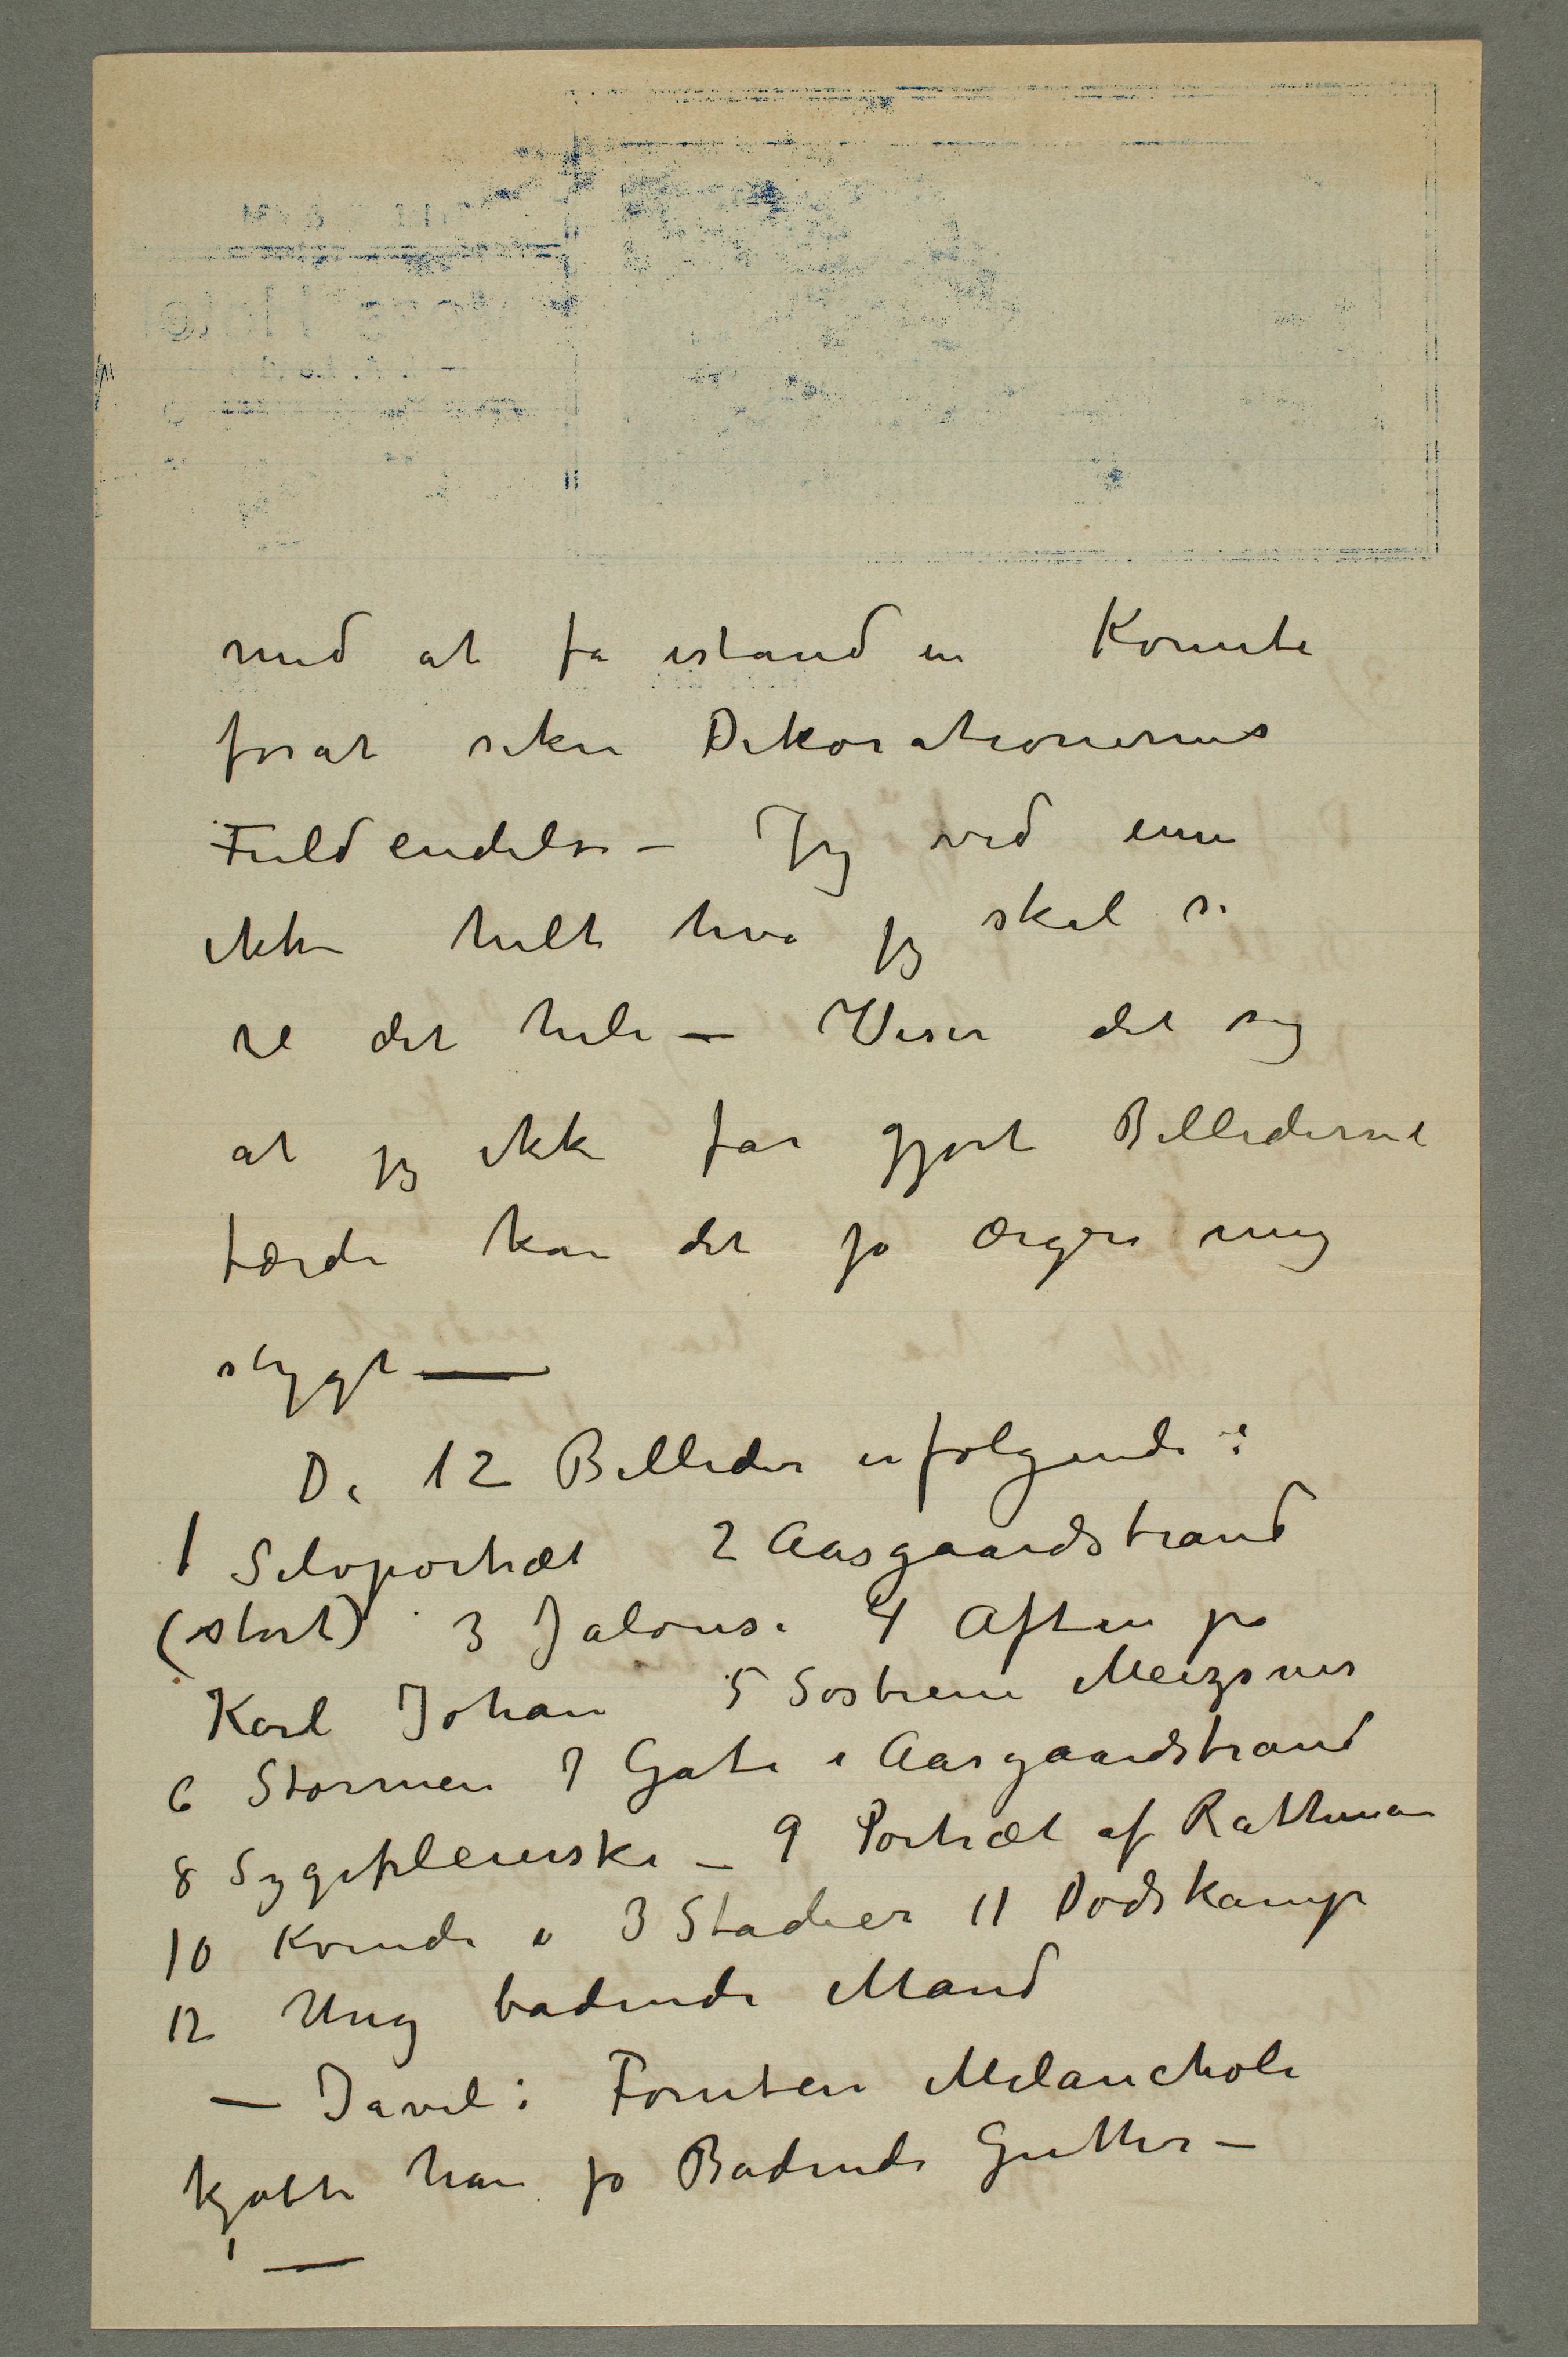 med at få istand en Komite
forat sikre Dekorationernes
Fuldendelse – Jeg ved ennu
ikke helt hva jeg skal si
til det hele — Viser det sig
at jeg ikke får gjort Billederne
færdi kan det jo ærgre mig
stygt —
De 12 Billeder er følgende:
1 Selvportræt 2 Aasgaardstrand
(stort) 3 Jalousi 4 Aften på
Karl Johan 5 Søstrene Meizsner
6 Stormen 7 Gate i Aasgaardstrand
8 Sygepleierske – 9 Portræt af Rathenau
10 Kvinde i 3 Stadier 11 Dødskamp
12 Ung badende Mand
— Javel: Foruten Melancholi
kjøbte han jo Badende Gutter –
—